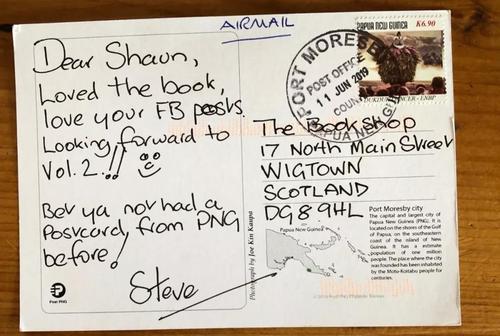 AIRMAIL
Dear Shaun,
Loved the book,
love your FB posts.
Looking forward to
Vol. 2!!
Bet ya not had a
Postcard, from PNG
before!
Steve
Post PNG
Photograph by Joe Kin Kaupa
PAPUA NEW GUINEA
K6.90
DUKDUK DANCER - ENBP
PORT MORESBY
POST OFFICE
11 JUN 2019
PAPUA NEW GUINEA
The Book Shop
17 North Main Street
WIGTOWN
SCOTLAND
DG8 9HL
Papua New Guinea
Port Moresby city
The capital and largest city of
Papua New Guinea (PNG). It is
located on the shores of the Gulf
of Papua, on the southeastern
coast of the island of New
Guinea. It has a estimate
population of one million
people. The place where the city
was founded has been inhabited
by the Motu-Koitabu people for
centuries.